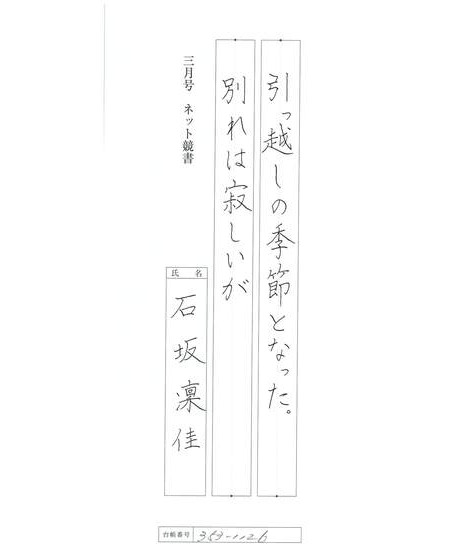 引っ越しの季節となった。
別れは寂しいが
三月号 ネット競書
氏名
石坂凛佳
台帳番号 353-1126